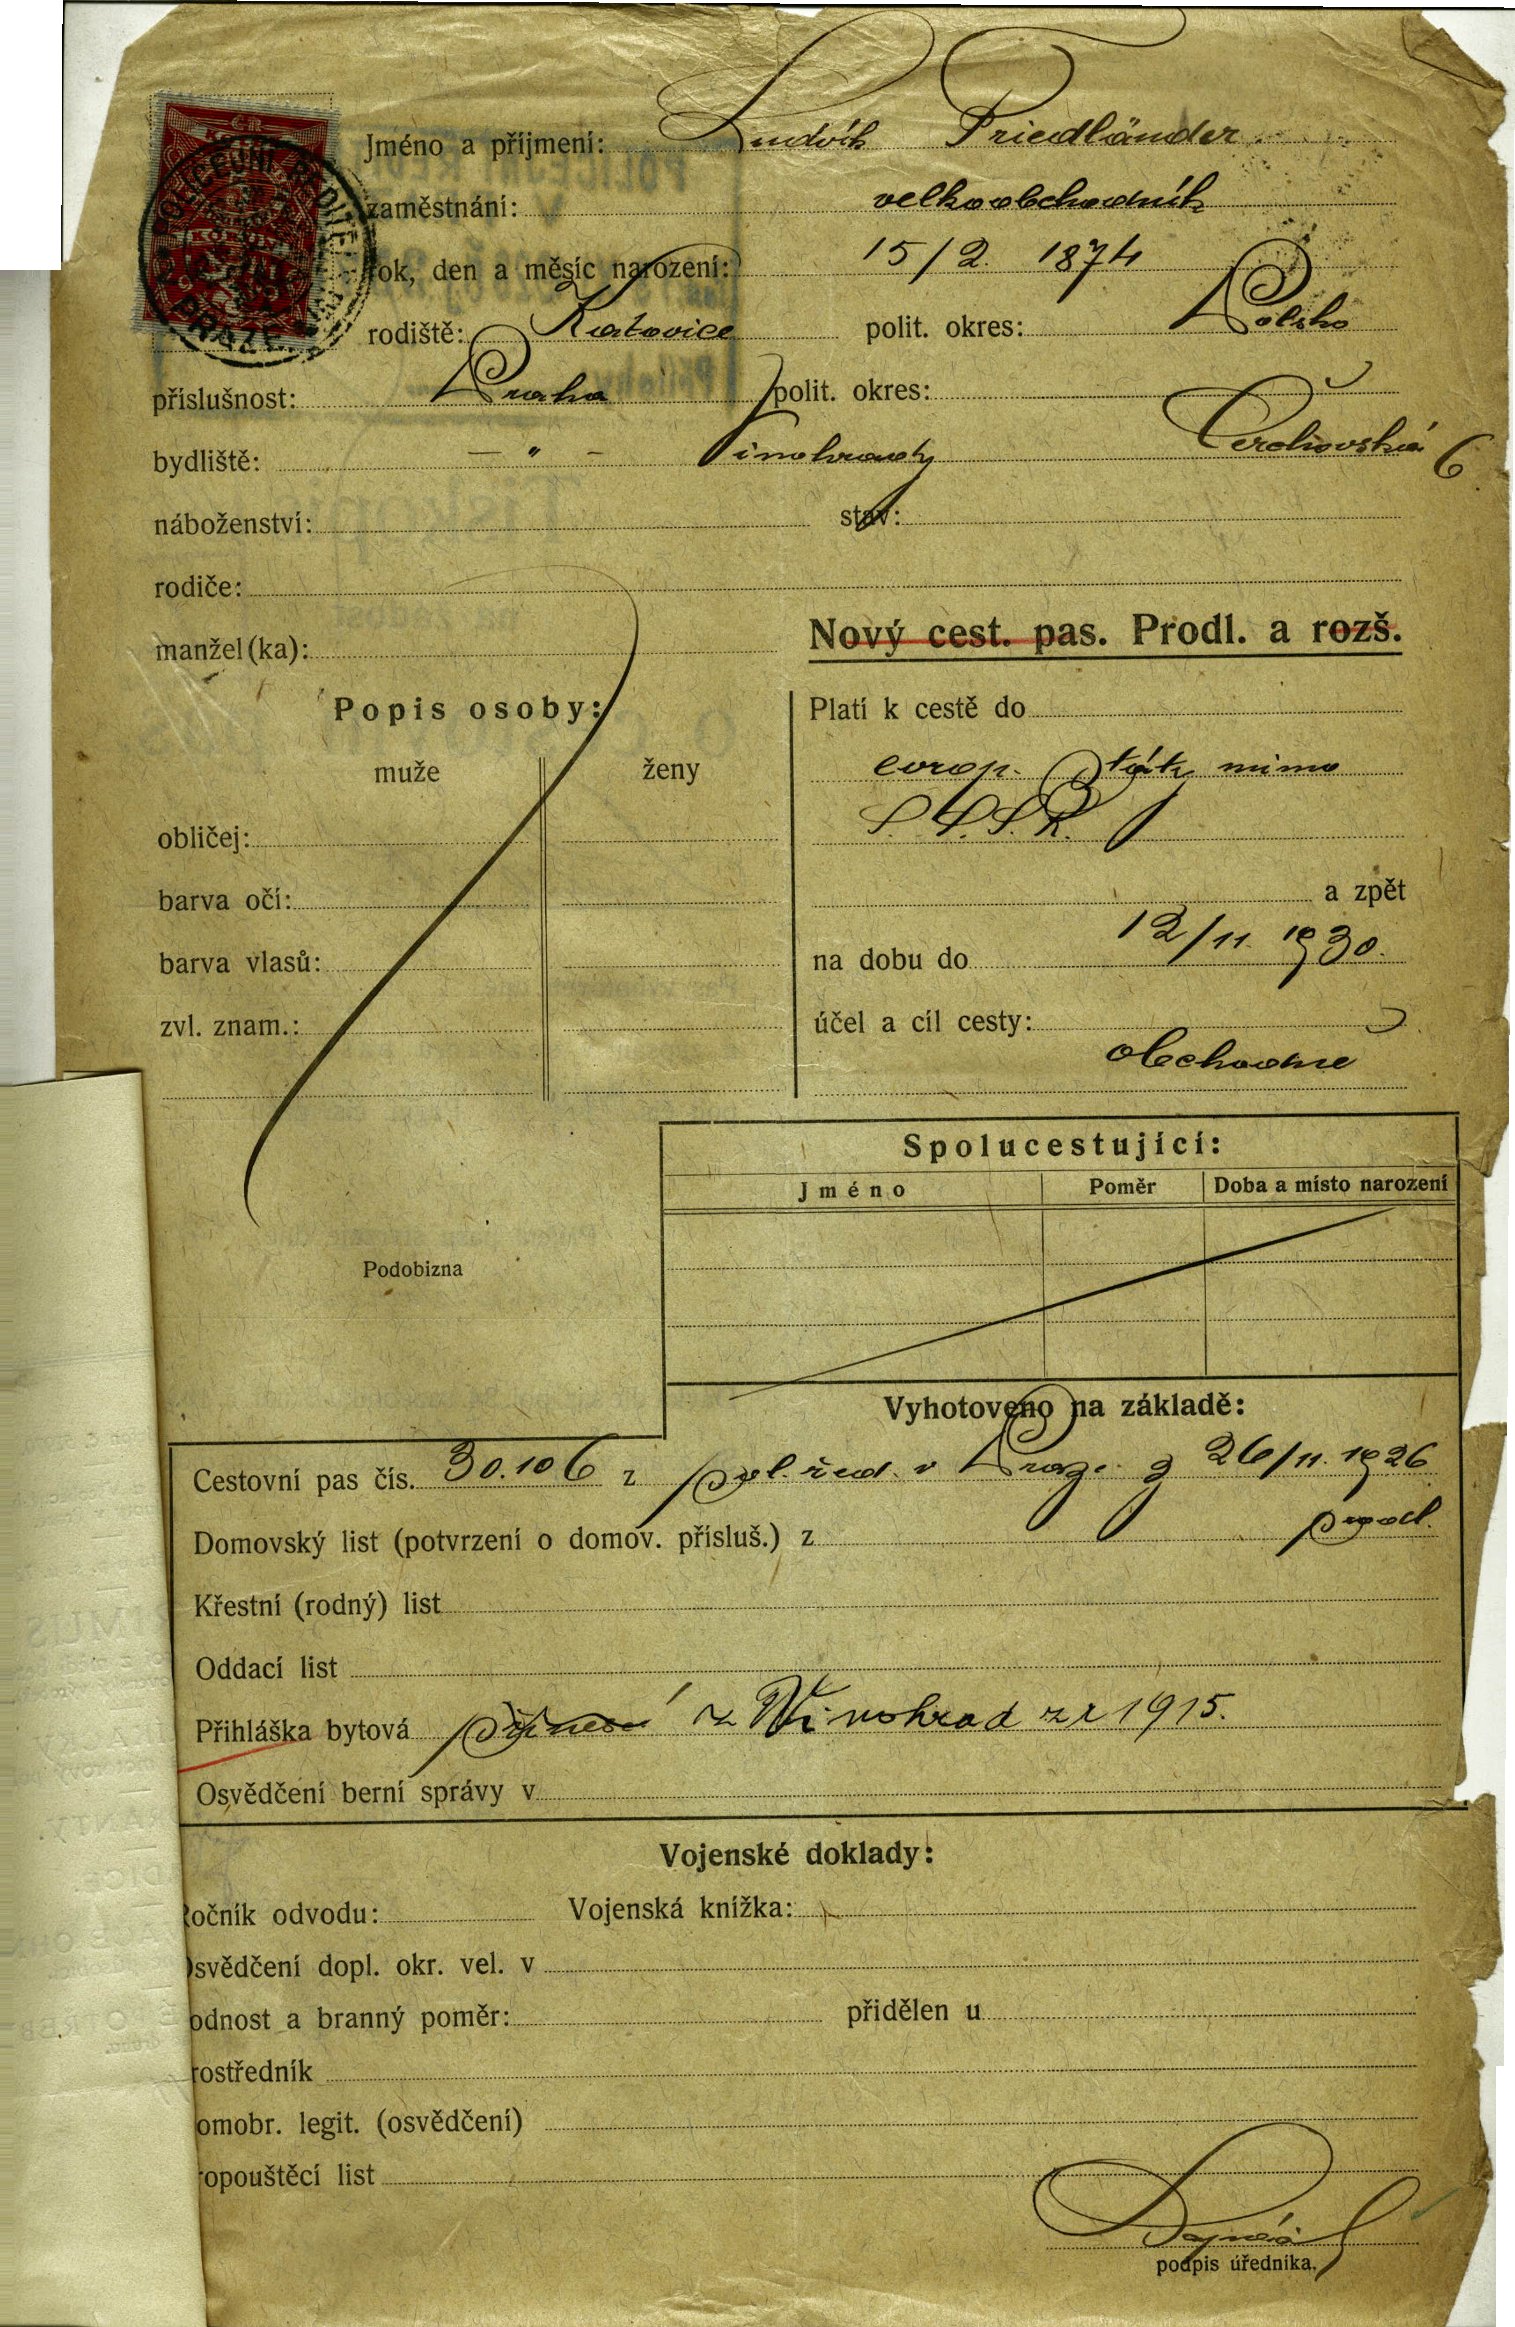 Jméno a příjmení: Ludvík Friedländer.
zaměstnání: velkoobchodník
rok, den a měsíc narození: 15/2. 1874
rodiště: Katovice polit. okres: Polsko
příslušnost: Praha polit. okres:
bydliště: — " — Vinohrady Čerchovská 6
náboženství: stav:
rodiče:
manžel(ka):
Nový cest. pas. Prodl. a rozš.
Popis osoby:
muže ženy
obličej:
barva očí:
barva vlasů:
zvl. znam.:
Platí k cestě do
evrop. státy mimo
S.S.S.R.
a zpět
na dobu do 12/11. 1930.
účel a cíl cesty:
obchodně
Podobizna
Spolucestující:
Jméno Poměr Doba a místo narození
Vyhotoveno na základě:
Cestovní pas čís. 30.106 z pol. řed. v Praze z 26/11. 1926
prodl.
Domovský list (potvrzení o domov. přísluš.) z
Křestní (rodný) list
Oddací list
Přihláška bytová přinese z Vinohrad z r 1915.
Osvědčení berní správy v
Vojenské doklady:
Ročník odvodu: Vojenská knížka:
Osvědčení dopl. okr. vel. v
odnost a branný poměr: přidělen u
rostředník
omobr. legit. (osvědčení)
ropouštěcí list
podpis úředníka.